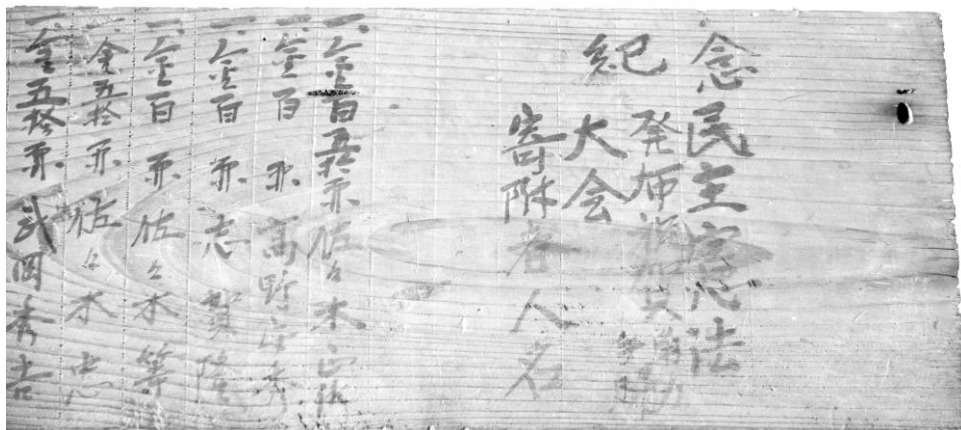 紀念
民主憲法
発布祝賀運動
大会
寄附者人名
一、金百五拾円佐々木
一、金百円高野秀
一、金百円志賀隆
一、金百円佐々木等
一、金五拾円佐々木忠
一、金五拾円武岡秀吉